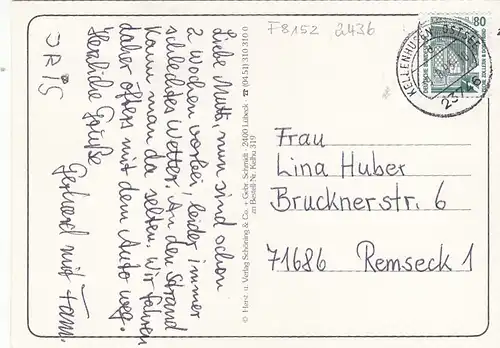 F8152 2436
KELLENHUSEN, OSTSEE
23
80
Liebe Mutti, nun sind schon
2 Wochen vorbei, leider immer
schlechtes Wetter. An den Strand
kann man da selten. Wir fahren
daher öfters mit dem Auto weg.
Herzliche Grüße
Gerhard mit Fam.
© Horst u. Verlag Schöning & Co. + Gebr. Schmidt · 24100 Lübeck · ☎ (04 51) 310 310
zu Bestell-Nr. Kelhu 319
Frau
Lina Huber
Brucknerstr. 6
71686 Remseck 1